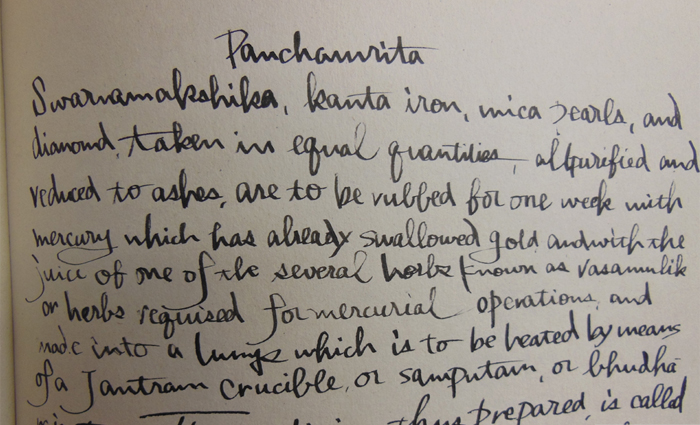 Panchamrita
Swarnamakshika, kanta iron, mica pearls, and
diamond, taken in equal quantities, all purified and
reduced to ashes, are to be rubbed for one week with
mercury which has already swallowed gold and with the
juice of one of the several herbs known as rasamulik
or herbs required for mercurial operations, and
made into a lump which is to be heated by means
of a Jantram crucible, or samputam, or bhudha
thus prepared, is called